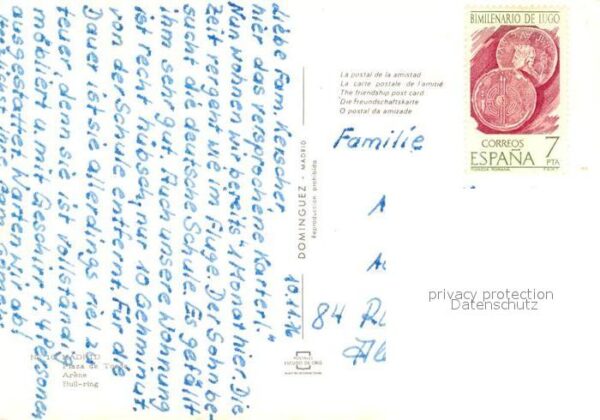 Liebe Fam. Kersche,
hier das versprochene Karterl!
Nun wohnen wir bereits 1 Monat hier. Die
Zeit vergeht wie im Fluge. Der Sohn be-
sucht die deutsche Schule. Es gefällt
ihm sehr gut. Auch unsere Wohnung
ist recht hübsch, nur 10 Gehminut.
von der Schule entfernt. Für die
Dauer ist sie allerdings viel zu
teuer, denn sie ist vollständig
möbliert und mit Geschirr f. 4 Personen
ausgestattet. Warten wir ab!
10.11.76
MADRID
Plaza de
Arène
Bull-ring
DOMINGUEZ - MADRID
Reproduccion prohibida
La postal de la amistad
La carte postale de l'amitié
The friendship post card
Die freundschaftskarte
O postal da amizade
BIMILENARIO DE LUGO
CORREOS
ESPAÑA 7
PTA
Familie
A
84 R
privacy protection
Datenschutz